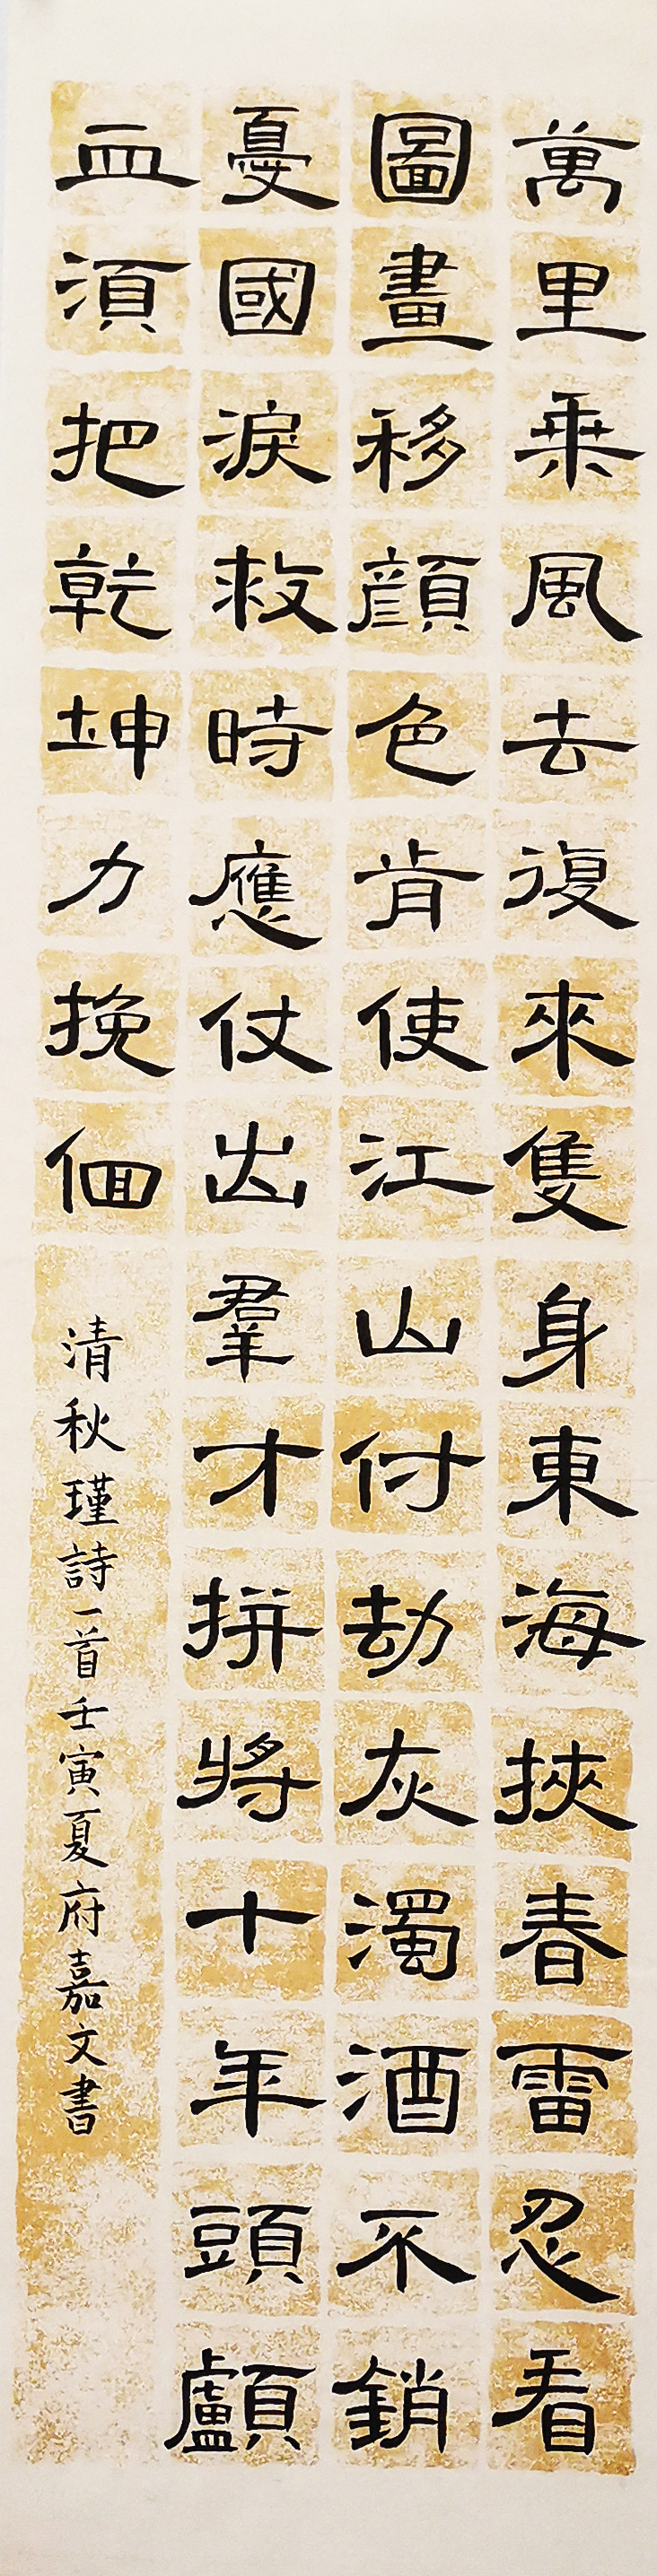 萬里乗風去復來隻身東海挾春雷忍看
圖畫移顔色肯使江山付劫灰濁酒不銷
憂國淚救時應仗出羣才拼將十年頭顱
血須把乾坤力挽佪
清秋瑾詩一首壬寅夏府嘉文書